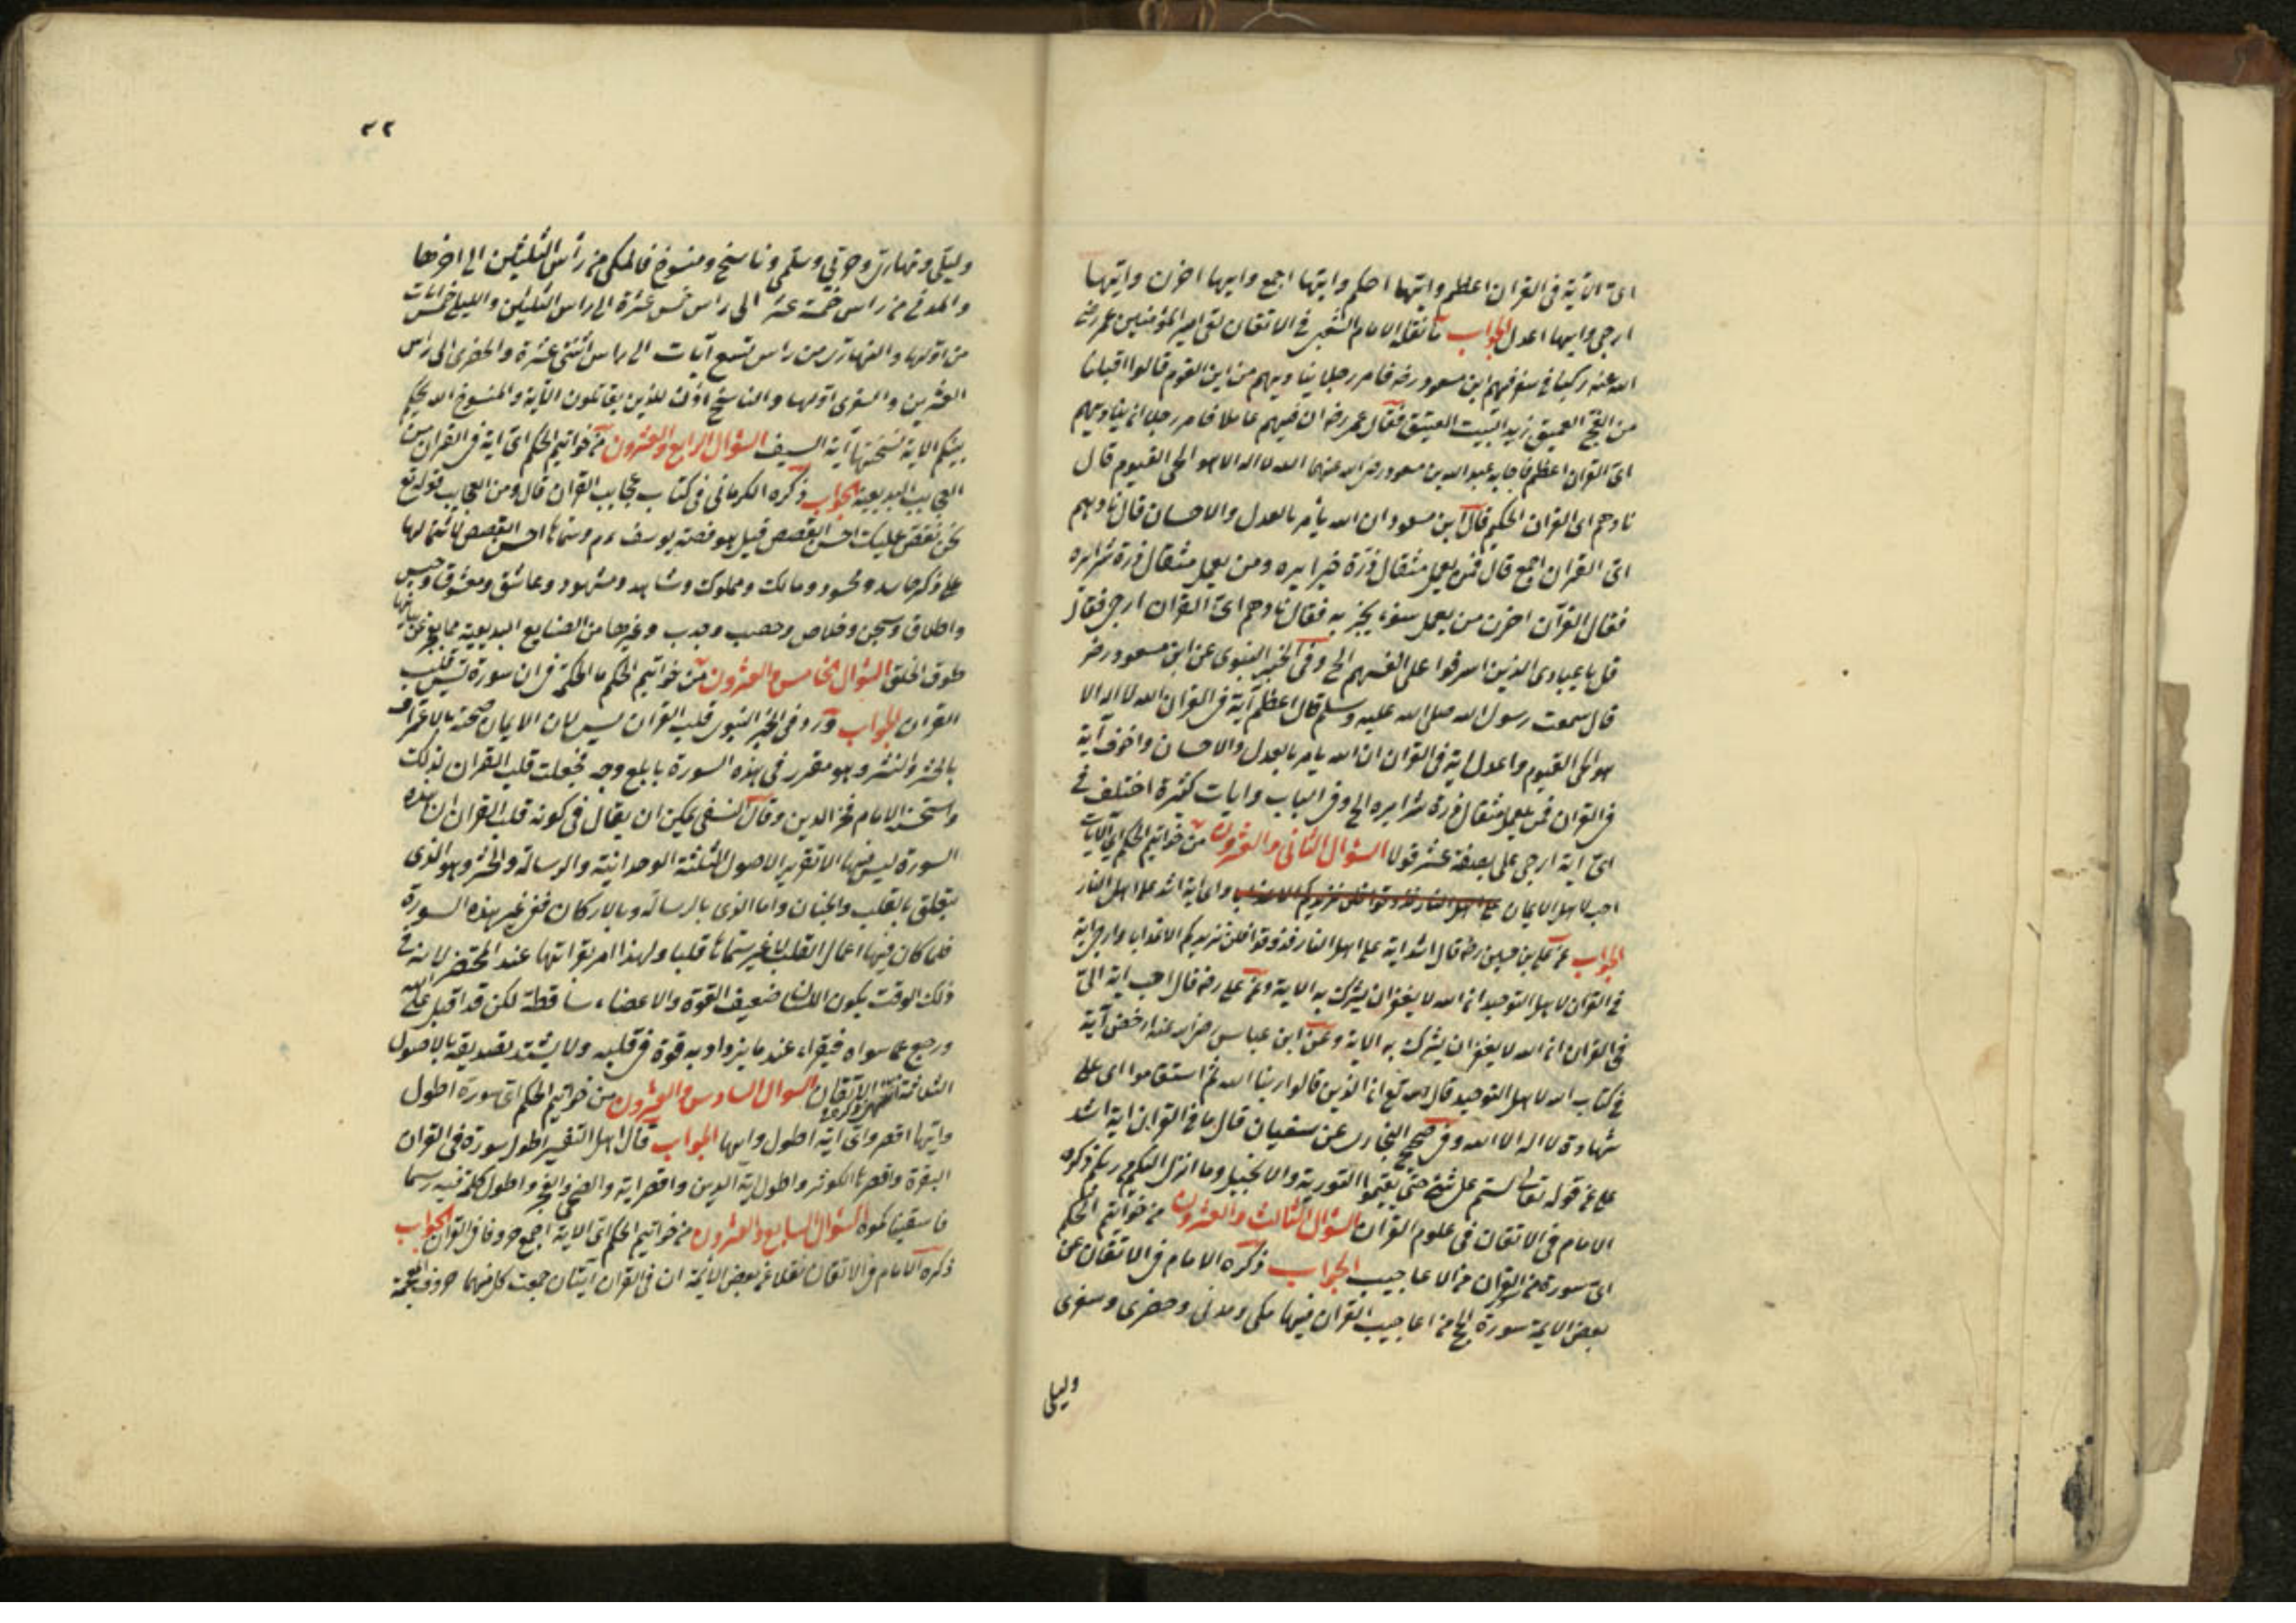 اى الآية فى القران اعظم وايتها احكم وايتها اجمع وايها احزن وايتها
ارجى وايها اعدل الجواب ما نقله الامام الشعبى فى الاتقان لقى امير المؤمنين عمر رضى
الله عنه ركبا فى سفر فيهم ابن مسعود رضه فامر رجلا يناديهم من اين القوم قالوا اقبلنا
من الفج العميق نريد البيت العتيق فقال عمر رضه ان فيهم عاملا فامر رجلا ان يناديهم
اى القران اعظم فاجابه عبد الله بن مسعود رضى الله عنهما الله لا اله الا هو الحى القيوم قال
نادهم اى القران احكم قال ابن مسعود ان الله يأمر بالعدل والاحسان قال نادهم
اى القران اجمع قال فمن يعمل مثقال ذرة خيرا يره ومن يعمل مثقال ذرة شرا يره
فقال القرآن احزن من يعمل سوءا يجز به فقال نادهم اى القران ارجى فقال
قل يا عبادى الذين اسرفوا على انفسهم الخ وفى الخبر النبوى عن ابن مسعود رضه
قال سمعت رسول الله صلى الله عليه وسلم قال اعظم آية فى القران الله لا اله الا
هو الحى القيوم واعدل اية فى القران ان الله يامر بالعدل والاحسان واخوف آية
فى القران فمن يعمل مثقال ذرة شرا يره الخ وفى الباب وايات كثيرة اختلف فى
اى آية ارجى على بضعة عشر قولا السؤال الثانى والعشرون من خواتيم الحكم اى الآيات
احب لاهل الايمان واى اية اشد على اهل النار
الجواب عن على بن حسين رضه قال اشد اية على اهل النار فذوقوا فلن نزيدكم الا عذابا وارجى اية
فى القران لاهل التوحيد ان الله لا يغفر ان يشرك به الاية وعن على رضه قال احب اية الى
فى القران ان الله لا يغفر ان يشرك به الاية وعن ابن عباس رضى الله عنه ارخص آية
فى كتاب الله لاهل التوحيد قال الله تع ان الذين قالوا ربنا الله ثم استقاموا اى على
شهادة لا اله الا الله وفى صحيح البخارى عن سفيان قال ما فى القران اية اشد
على من قوله تعالى لستم على شئ حتى تقيموا التورية والانجيل وما انزل اليكم من ربكم ذكره
الامام فى الاتقان فى علوم القران السؤال الثالث والعشرون من خواتيم الحكم
اى سورة من القران من الاعاجيب الجواب ذكره الامام فى الاتقان عن
بعض الايمة سورة الحج من اعاجيب القران فيها مكى ومدنى وحضرى وسفرى
وليلى
٢٢
وليلى ونهارى وحربى وسلمى وناسخ ومنسوخ فالمكى من رأس الثلثين الى اخرها
والمدنى من راس خمسة عشر الى راس خمس عشرة الى راس الثلثين والليلى خمس آيات
من اولها والنهارى من راس تسع آيات الى راس اثنتى عشرة والحضرى الى رأس
العشرين والسفرى اولها والناسخ اذن للذين يقاتلون الآية والمنسوخ الله يحكم
بينكم الاية نسختها آية السيف السؤال الرابع والعشرون من خواتيم الحكم اى اية فى القران من
العجايب البديعية الجواب ذكره الكرمانى فى كتاب عجايب القران قال ومن العجايب قوله تع
نحن نقص عليك احسن القصص قيل هو قصة يوسف عم وسماها احسن القصص لاشتمالها
على ذكر حاسد ومحسود ومالك ومملوك وشاهد ومشهود وعاشق ومعشوق وحبس
واطلاق وسجن وخلاص وخصب وجدب وغيرها من الصنايع البديعية مما يعجز عن بيانها
طوق الخلق السؤال الخامس والعشرون من خواتيم الحكم ما الحكمة فى ان سورة يس قلب
القران الجواب ورد فى الخبر النبوى قلب القران يس لان الايمان صحته بالاعتراف
بالحشر والنشر وهو مقرر فى هذه السورة بابلغ وجه فجعلت قلب القران لذلك
واستحسنه الامام فخر الدين وقال النسفى يمكن ان يقال فى كونه قلب القران ان هذه
السورة ليس فيها الا تقرير الاصول الثلثة الوحدانية والرسالة والحشر وهو الذى
يتعلق بالقلب والجنان واما الذى بالرسالة وبالاركان ففى غير هذه السورة
فلما كان فيها اعمال القلب لا غير سماها قلبا ولهذا امر بقرائتها عند المحتضر لانه فى
ذلك الوقت يكون اللسان ضعيف القوة والاعضاء ساقطة لكن قد اقبل على الله
ورجع عما سواه فيقراء عنده ما يزداد به قوة فى قلبه ولا يشتد تصديقه بالاصول
الثلثة الاتقان السوال السادس والعشرون من خواتيم الحكم اى سورة اطول
وايتها اقصر واى اية اطول وايها الجواب قال اهل التفسير اطول سورة فى القران
البقرة واقصرها الكوثر واطول اية الدين واقصر اية والضحى والفجر واطول كلمة فيه رسما
فاسقيناكموه السؤال السابع والعشرون من خواتيم الحكم اى الاية اجمع حروفا فى القران الجواب
ذكره الامام فى الاتقان نقلا عن بعض الائمة ان فى القران آيتان جمعت كل منهما حروف المعجمة